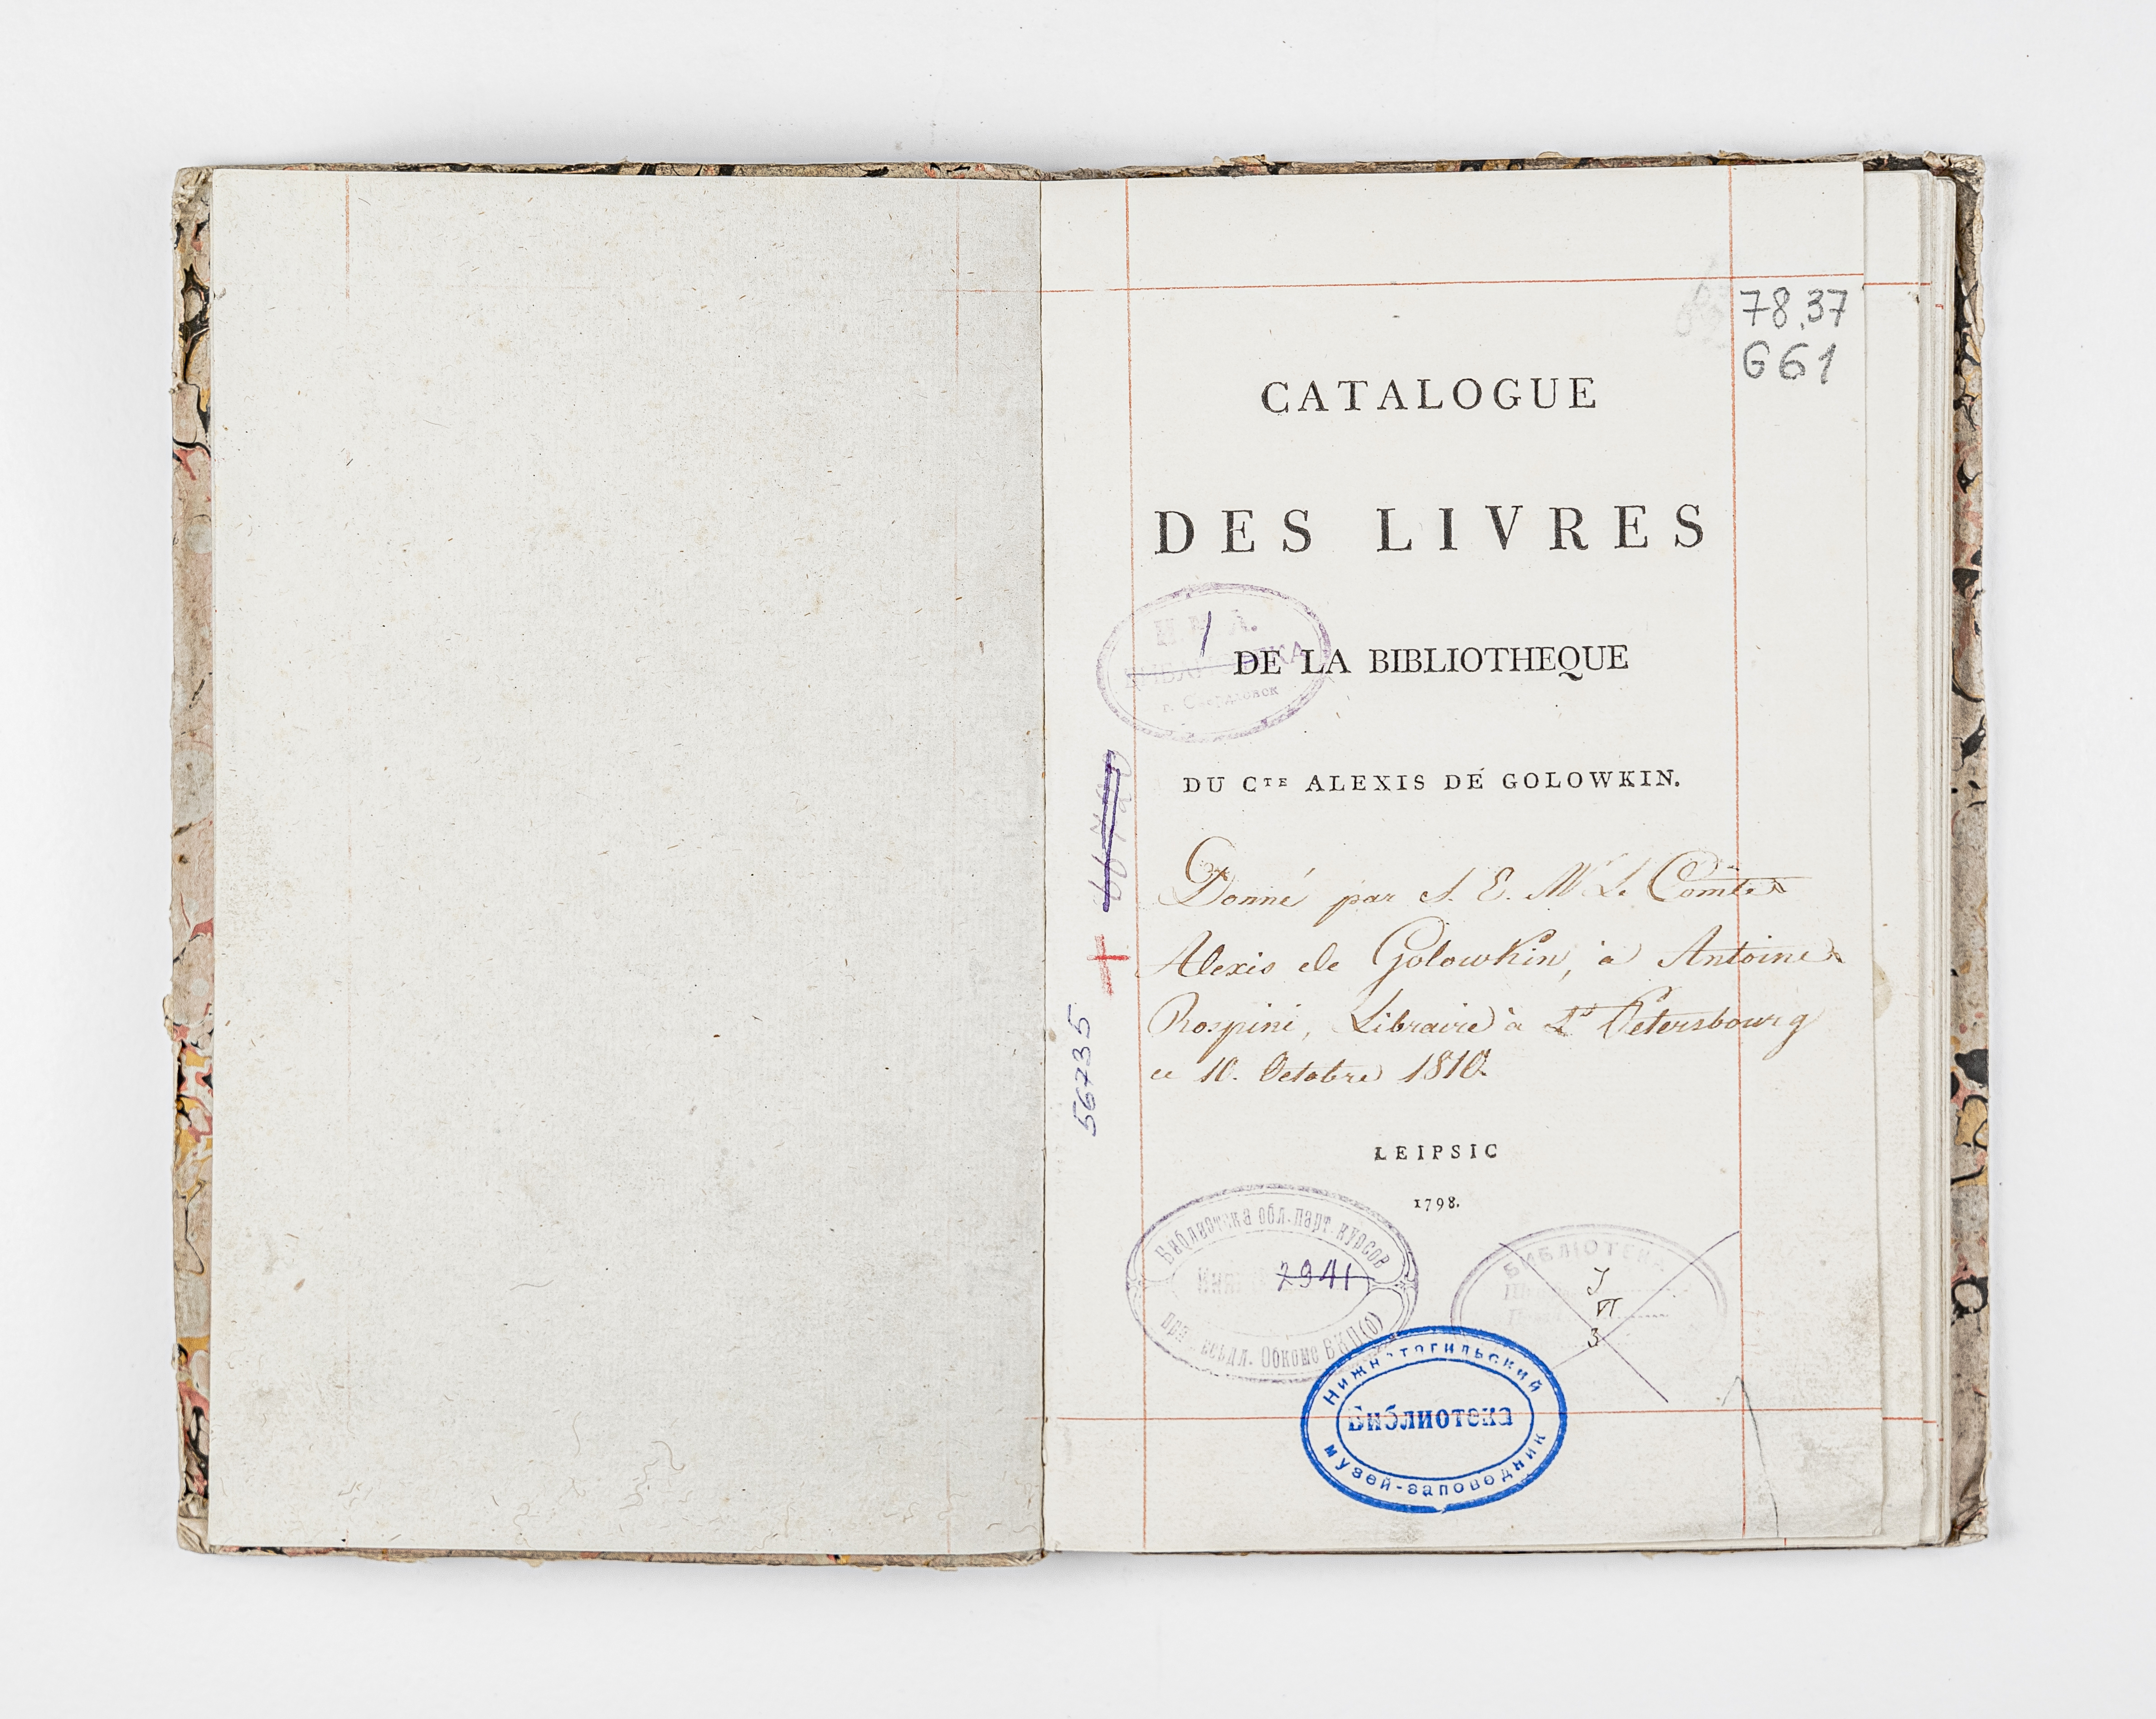 78.37
G61
CATALOGUE
DES LIVRES
DE LA BIBLIOTHEQUE
DU CTE ALEXIS DE GOLOWKIN.
Donné par S. E. Mr Le Comte
Alexis de Golowkin, à Antoine
Rospini, Libraire à St Petersbourg
ce 10. Octobre 1810.
56735
LEIPSIC
1798.
Библиотека обл. парт. курсов
2941
Обкоме ВКП(б)
БИБЛІОТЕКА
I
VI
3
Нижнетагильский
Библиотека
музей-заповедник